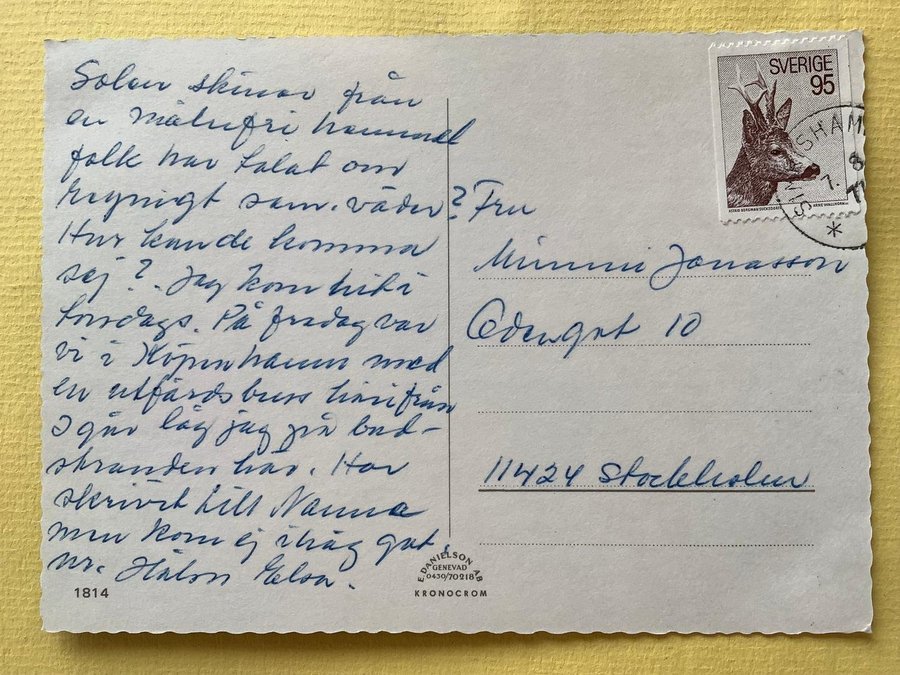 Solen skiner från
en molnfri himmel
folk har talat om
regnigt som. väder?
Hur kan de komma
sej? Jag kom hit i
torsdags. På fredag var
vi i Köpenhamn med
en utfärdsbuss härifrån
I går låg jag på bad-
stranden här. Har
skrivit till Nanna
men kom ej ihåg gat.
nr. Hälsn Elsa.
1814
E. DANIELSON AB
GENEVAD
0430/70218
KRONOCROM
SVERIGE
95
SIMRISHAMN
7. 8
77
Fru
Mimmi Jonasson
Odengat 10
11424 Stockholm